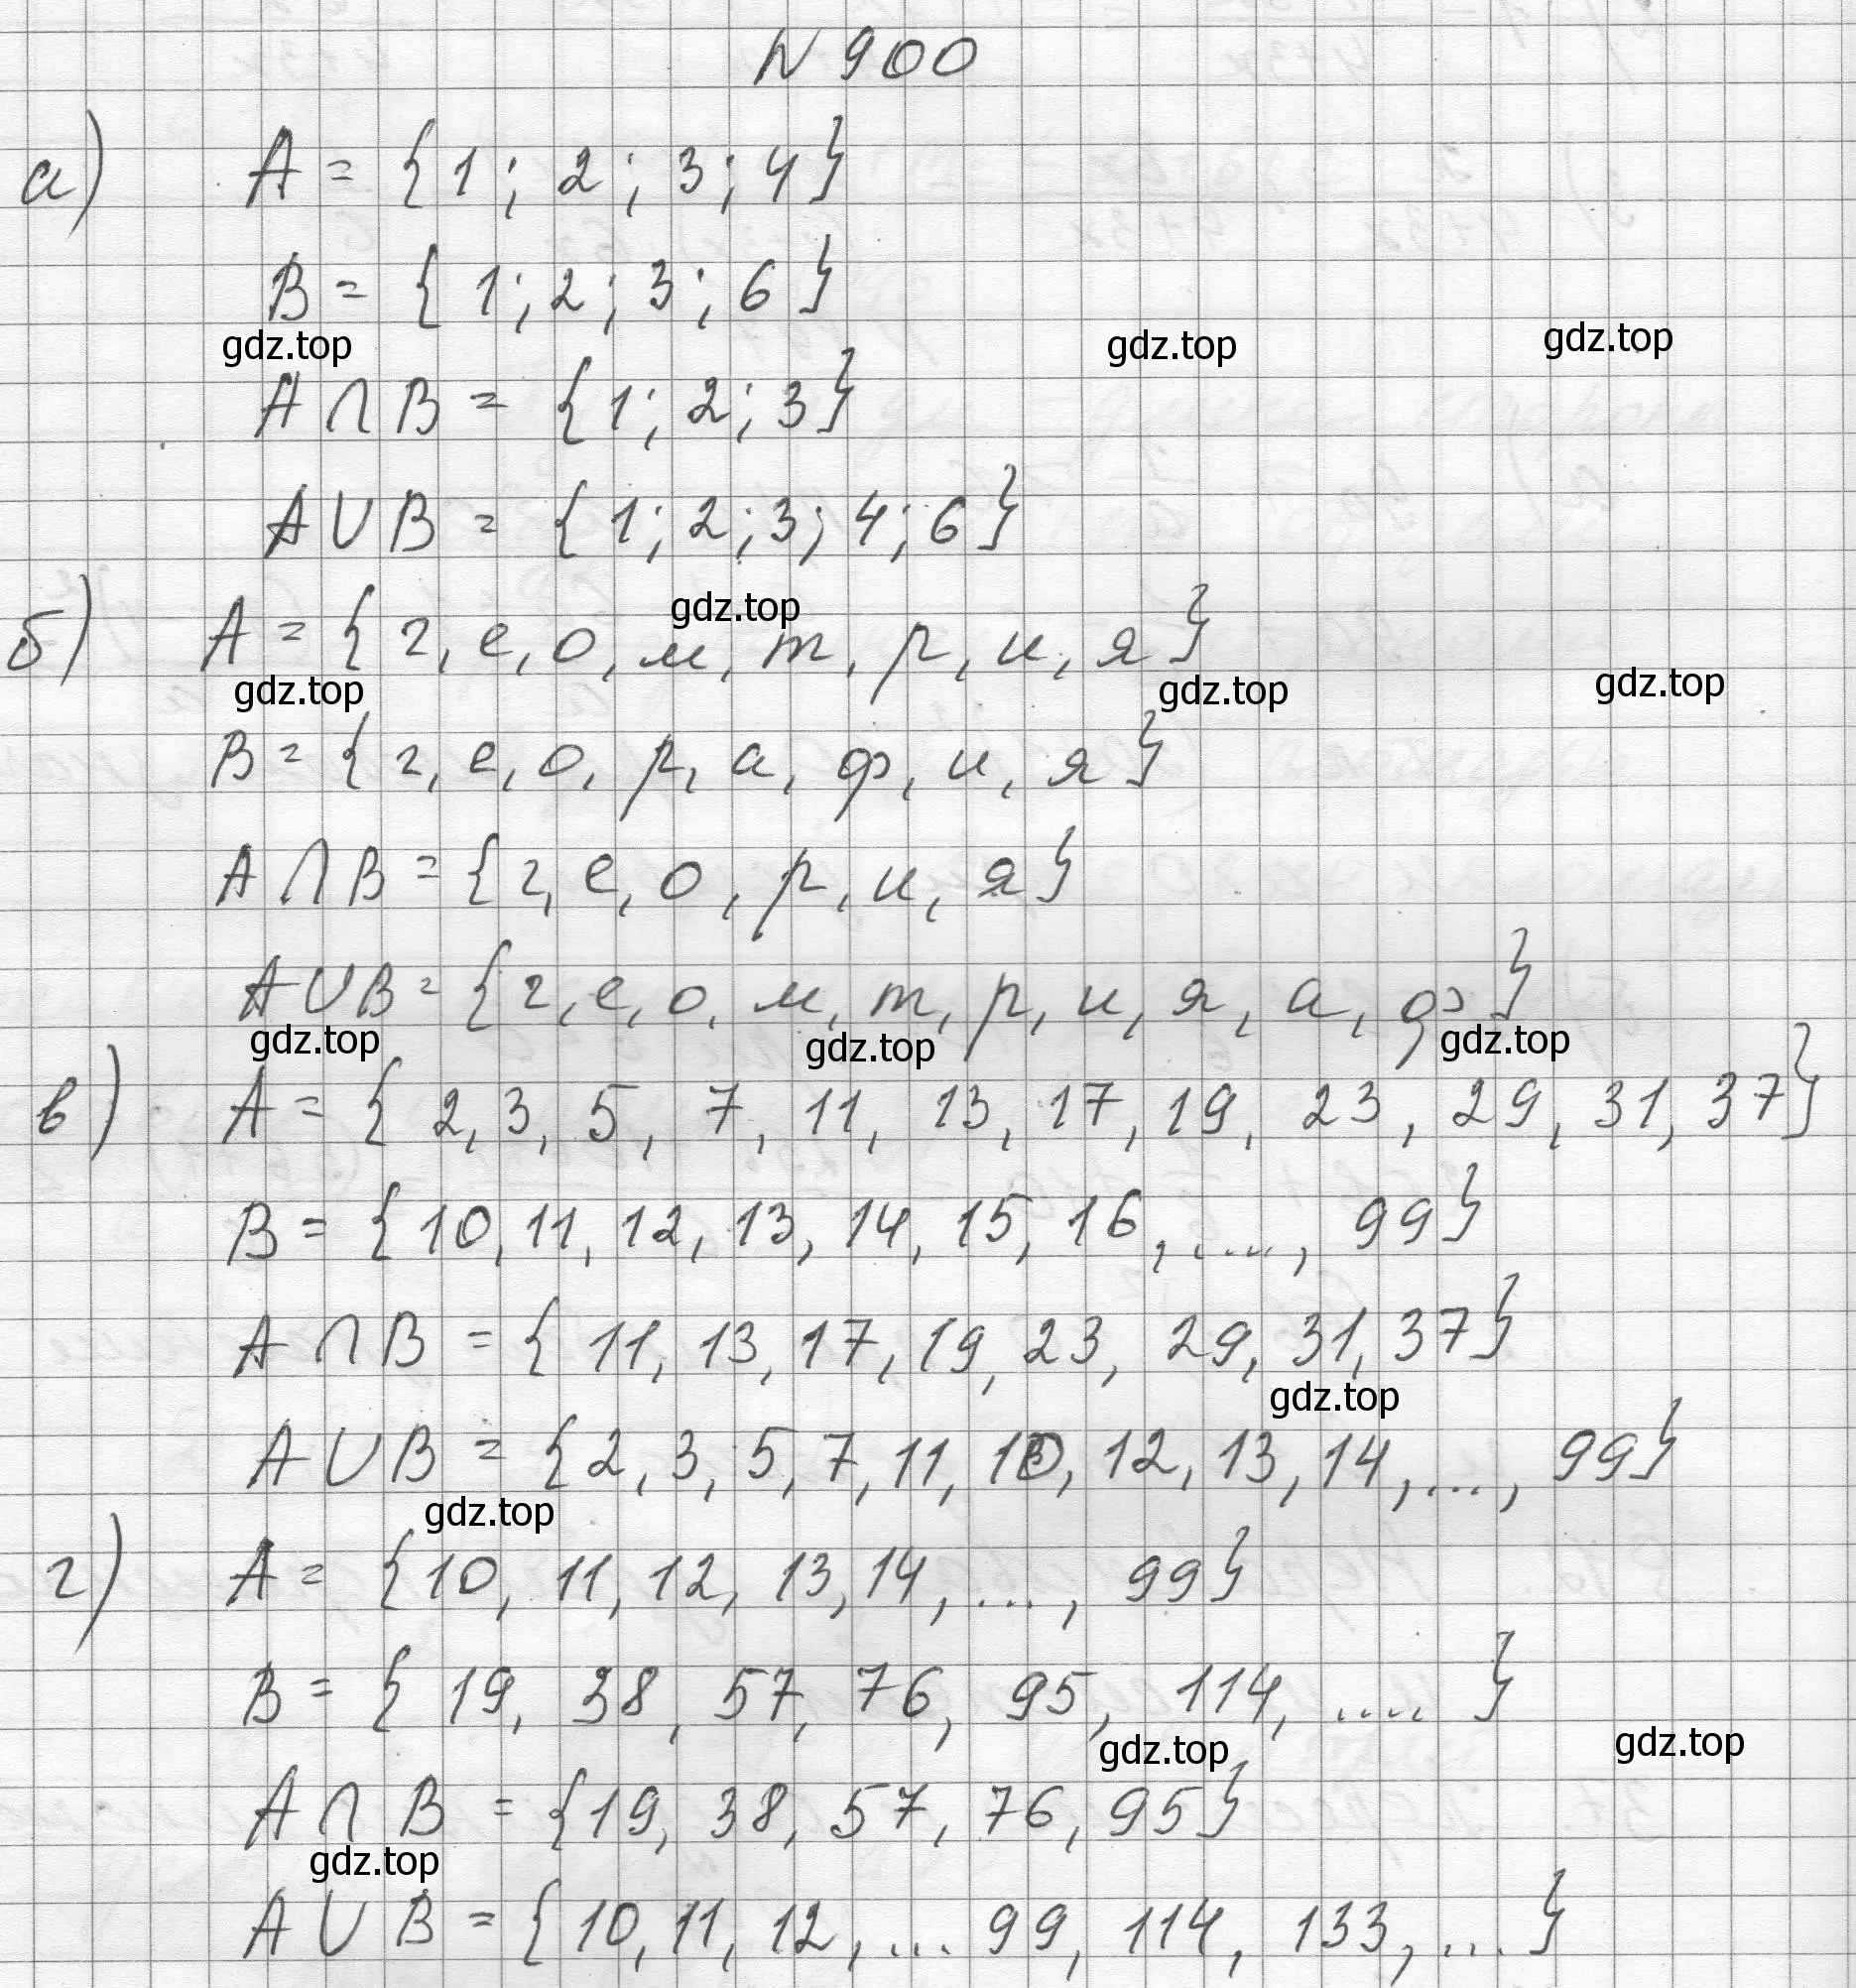 N 900
а) A = {1; 2; 3; 4}
B = {1; 2; 3; 6}
gdz.top gdz.top gdz.top
A∩B = {1; 2; 3}
A∪B = {1; 2; 3; 4; 6}
gdz.top
б) A = {г, е, о, м, т, р, и, я}
gdz.top gdz.top gdz.top
B = {г, е, о, р, а, ф, и, я}
A∩B = {г, е, о, р, и, я}
A∪B = {г, е, о, м, т, р, и, я, а, ф}
gdz.top gdz.top gdz.top
в) A = {2, 3, 5, 7, 11, 13, 17, 19, 23, 29, 31, 37}
B = {10, 11, 12, 13, 14, 15, 16, ...., 99}
A∩B = {11, 13, 17, 19, 23, 29, 31, 37}
gdz.top
A∪B = {2, 3, 5, 7, 11, 10, 12, 13, 14, ..., 99}
gdz.top
г) A = {10, 11, 12, 13, 14, ..., 99}
B = {19, 38, 57, 76, 95, 114, ....}
gdz.top gdz.top
A∩B = {19, 38, 57, 76, 95}
gdz.top
A∪B = {10, 11, 12, ... 99, 114, 133, ...}